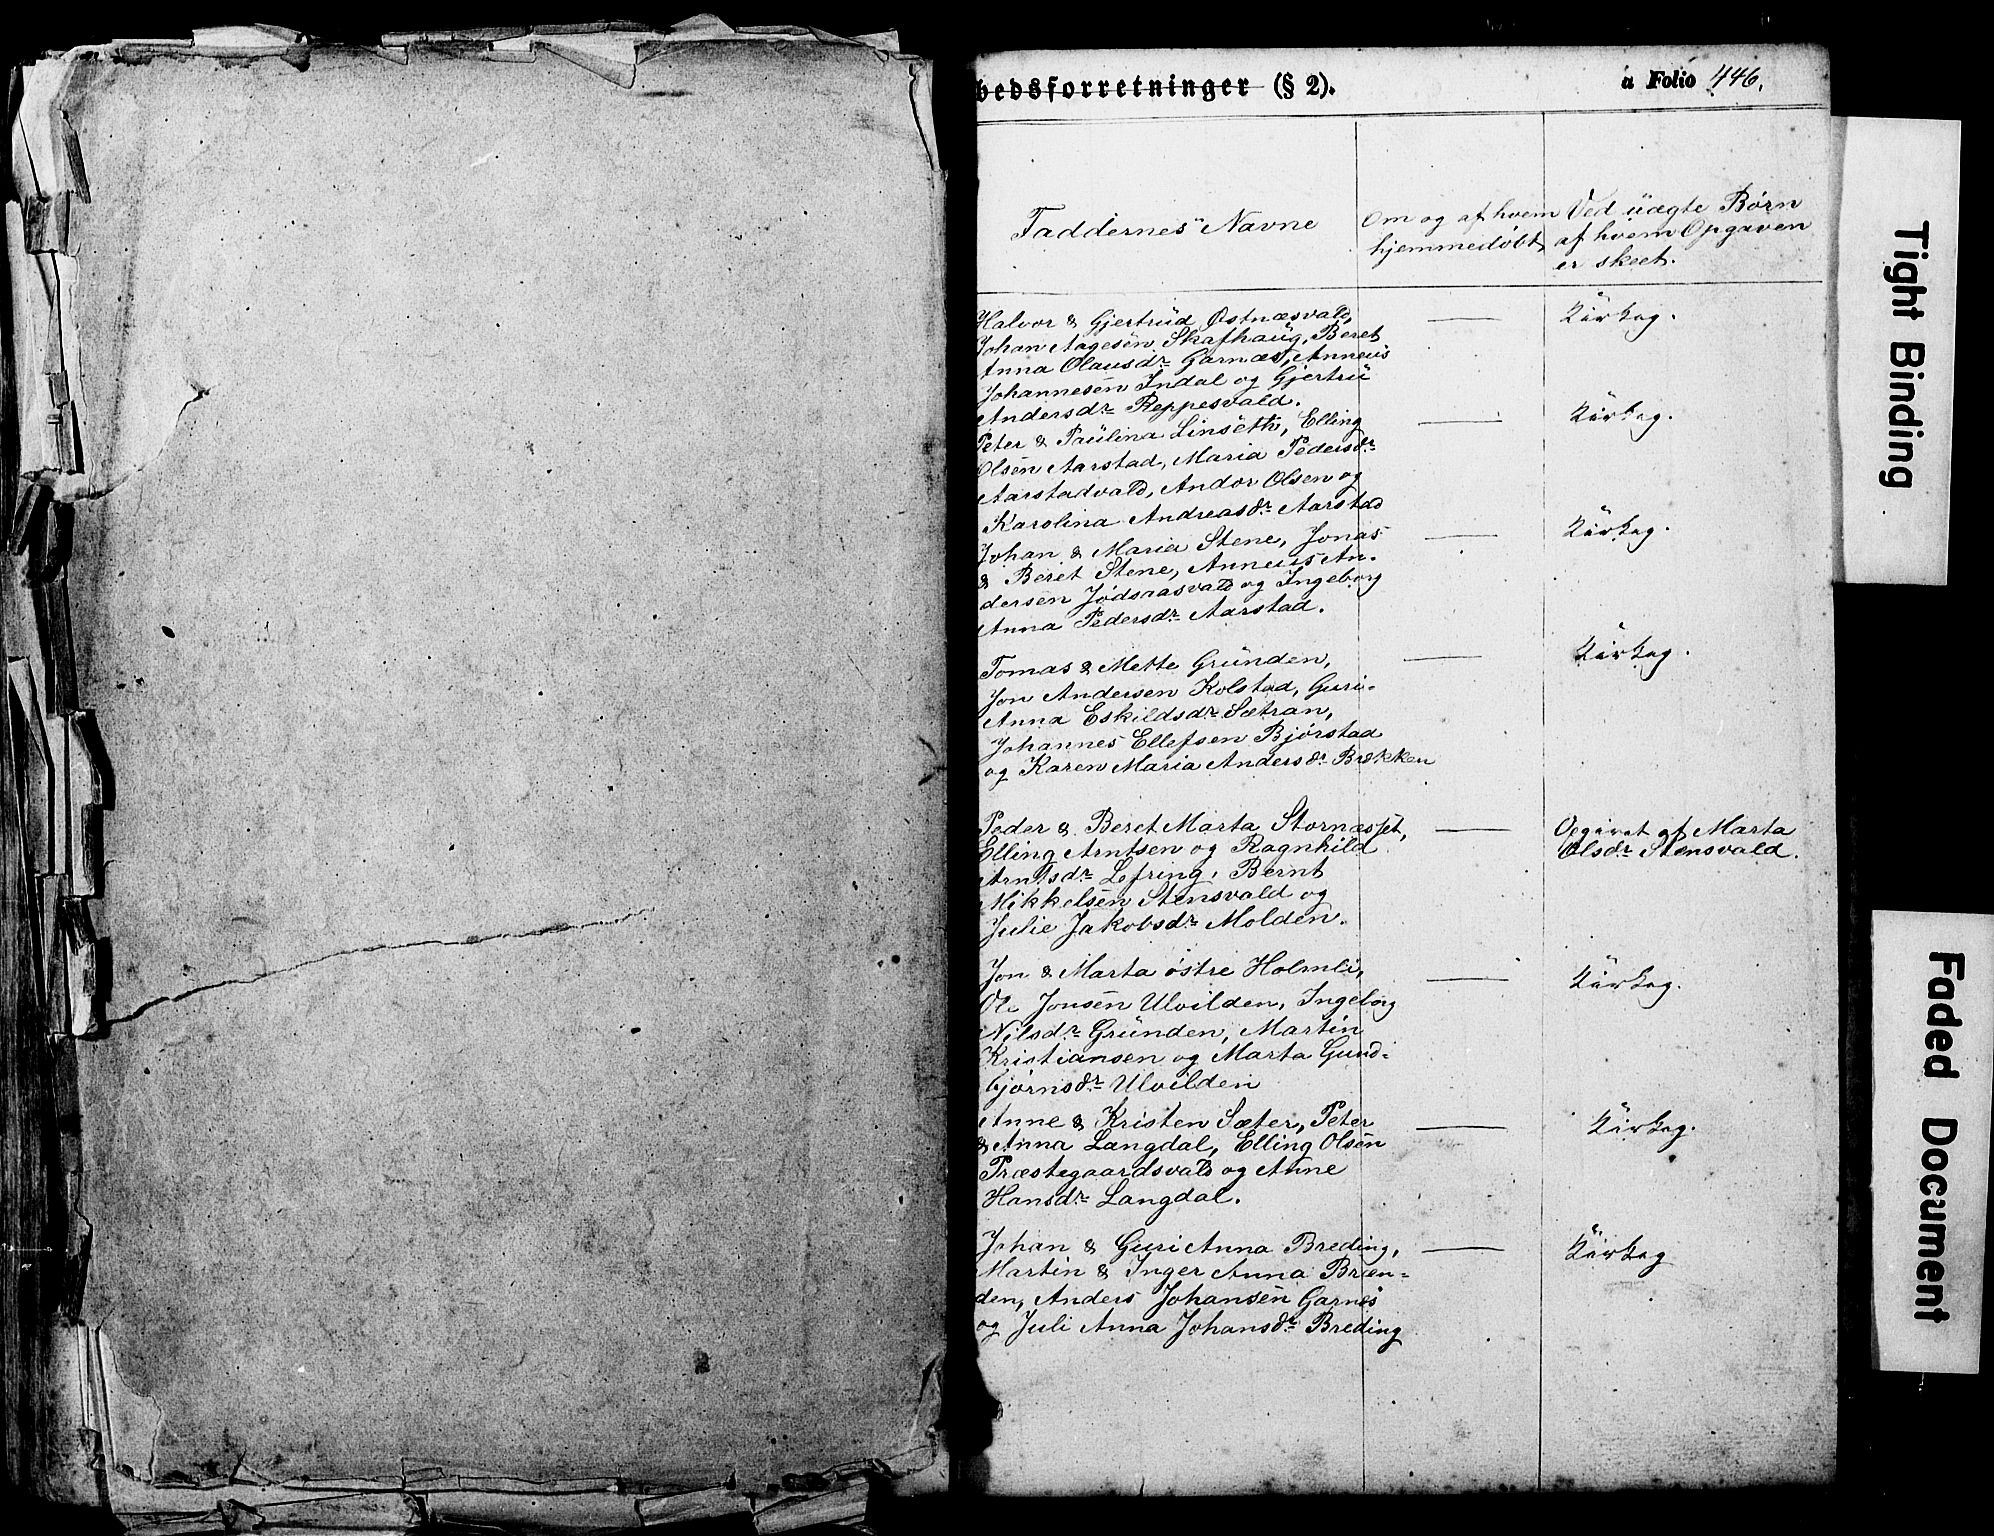 bedsforretninger (§ 2).
a Folio 446.
Faddernes Navne
Om og af hvem
hjemmedøbt
Ved uægte Børn
af hvem Opgaven
er skeet.
Halvor & Gjertrud Østnæsvald,
Johan Aagesen Skafhaug, Beret
Anna Olausdr. Garnæs, Anneus
Johannesen Indal og Gjertru
Andersdr. Reppesvald.
Kirkeg.
Peter & Paulina Linseth, Elling
Olsen Aarstad, Maria Pedersdr.
Aarstadvald, Andor Olsen og
Karolina Andreasdr. Aarstad
Kirkeg.
Johan & Maria Stene, Jonas
& Beret Stene, Anneus An-
dersen Jødsaasvald og Ingeborg
Anna Pedersdr. Aarstad.
Kirkeg.
Tomas & Mette Grunden,
Jon Andersen Kolstad, Guri-
Anna Eskildsdr. Sætran,
Johannes Ellefsen Bjørstad
og Karen Maria Andersdr. Brækken
Kirkeg.
Peder & Beret Marta Stornæsset,
Elling Arntsen og Ragnhild
Arntsdr. Lefring, Bernt
Mikkelsen Stensvald og
Julie Jakobsdr. Molden.
Opgivet af Marta
Olsdr. Stensvald.
Jon & Marta østre Holmli,
Ole Jonsen Ulvilden, Ingeborg
Nilsdr. Grunden, Martin
Kristiansen og Marta Gund-
bjørnsdr. Ulvilden
Kirkeg.
Anne & Kristen Sæter, Peter
& Anna Langdal, Elling Olsen
Præstegaardsvald og Anne
Hansdr. Langdal.
Kirkeg.
Johan & Guri Anna Breding,
Martin & Inger Anna Bræn-
den, Anders Johansen Garnes
og Juli Anna Johansdr. Breding
Kirkeg
Tight Binding
Faded Document